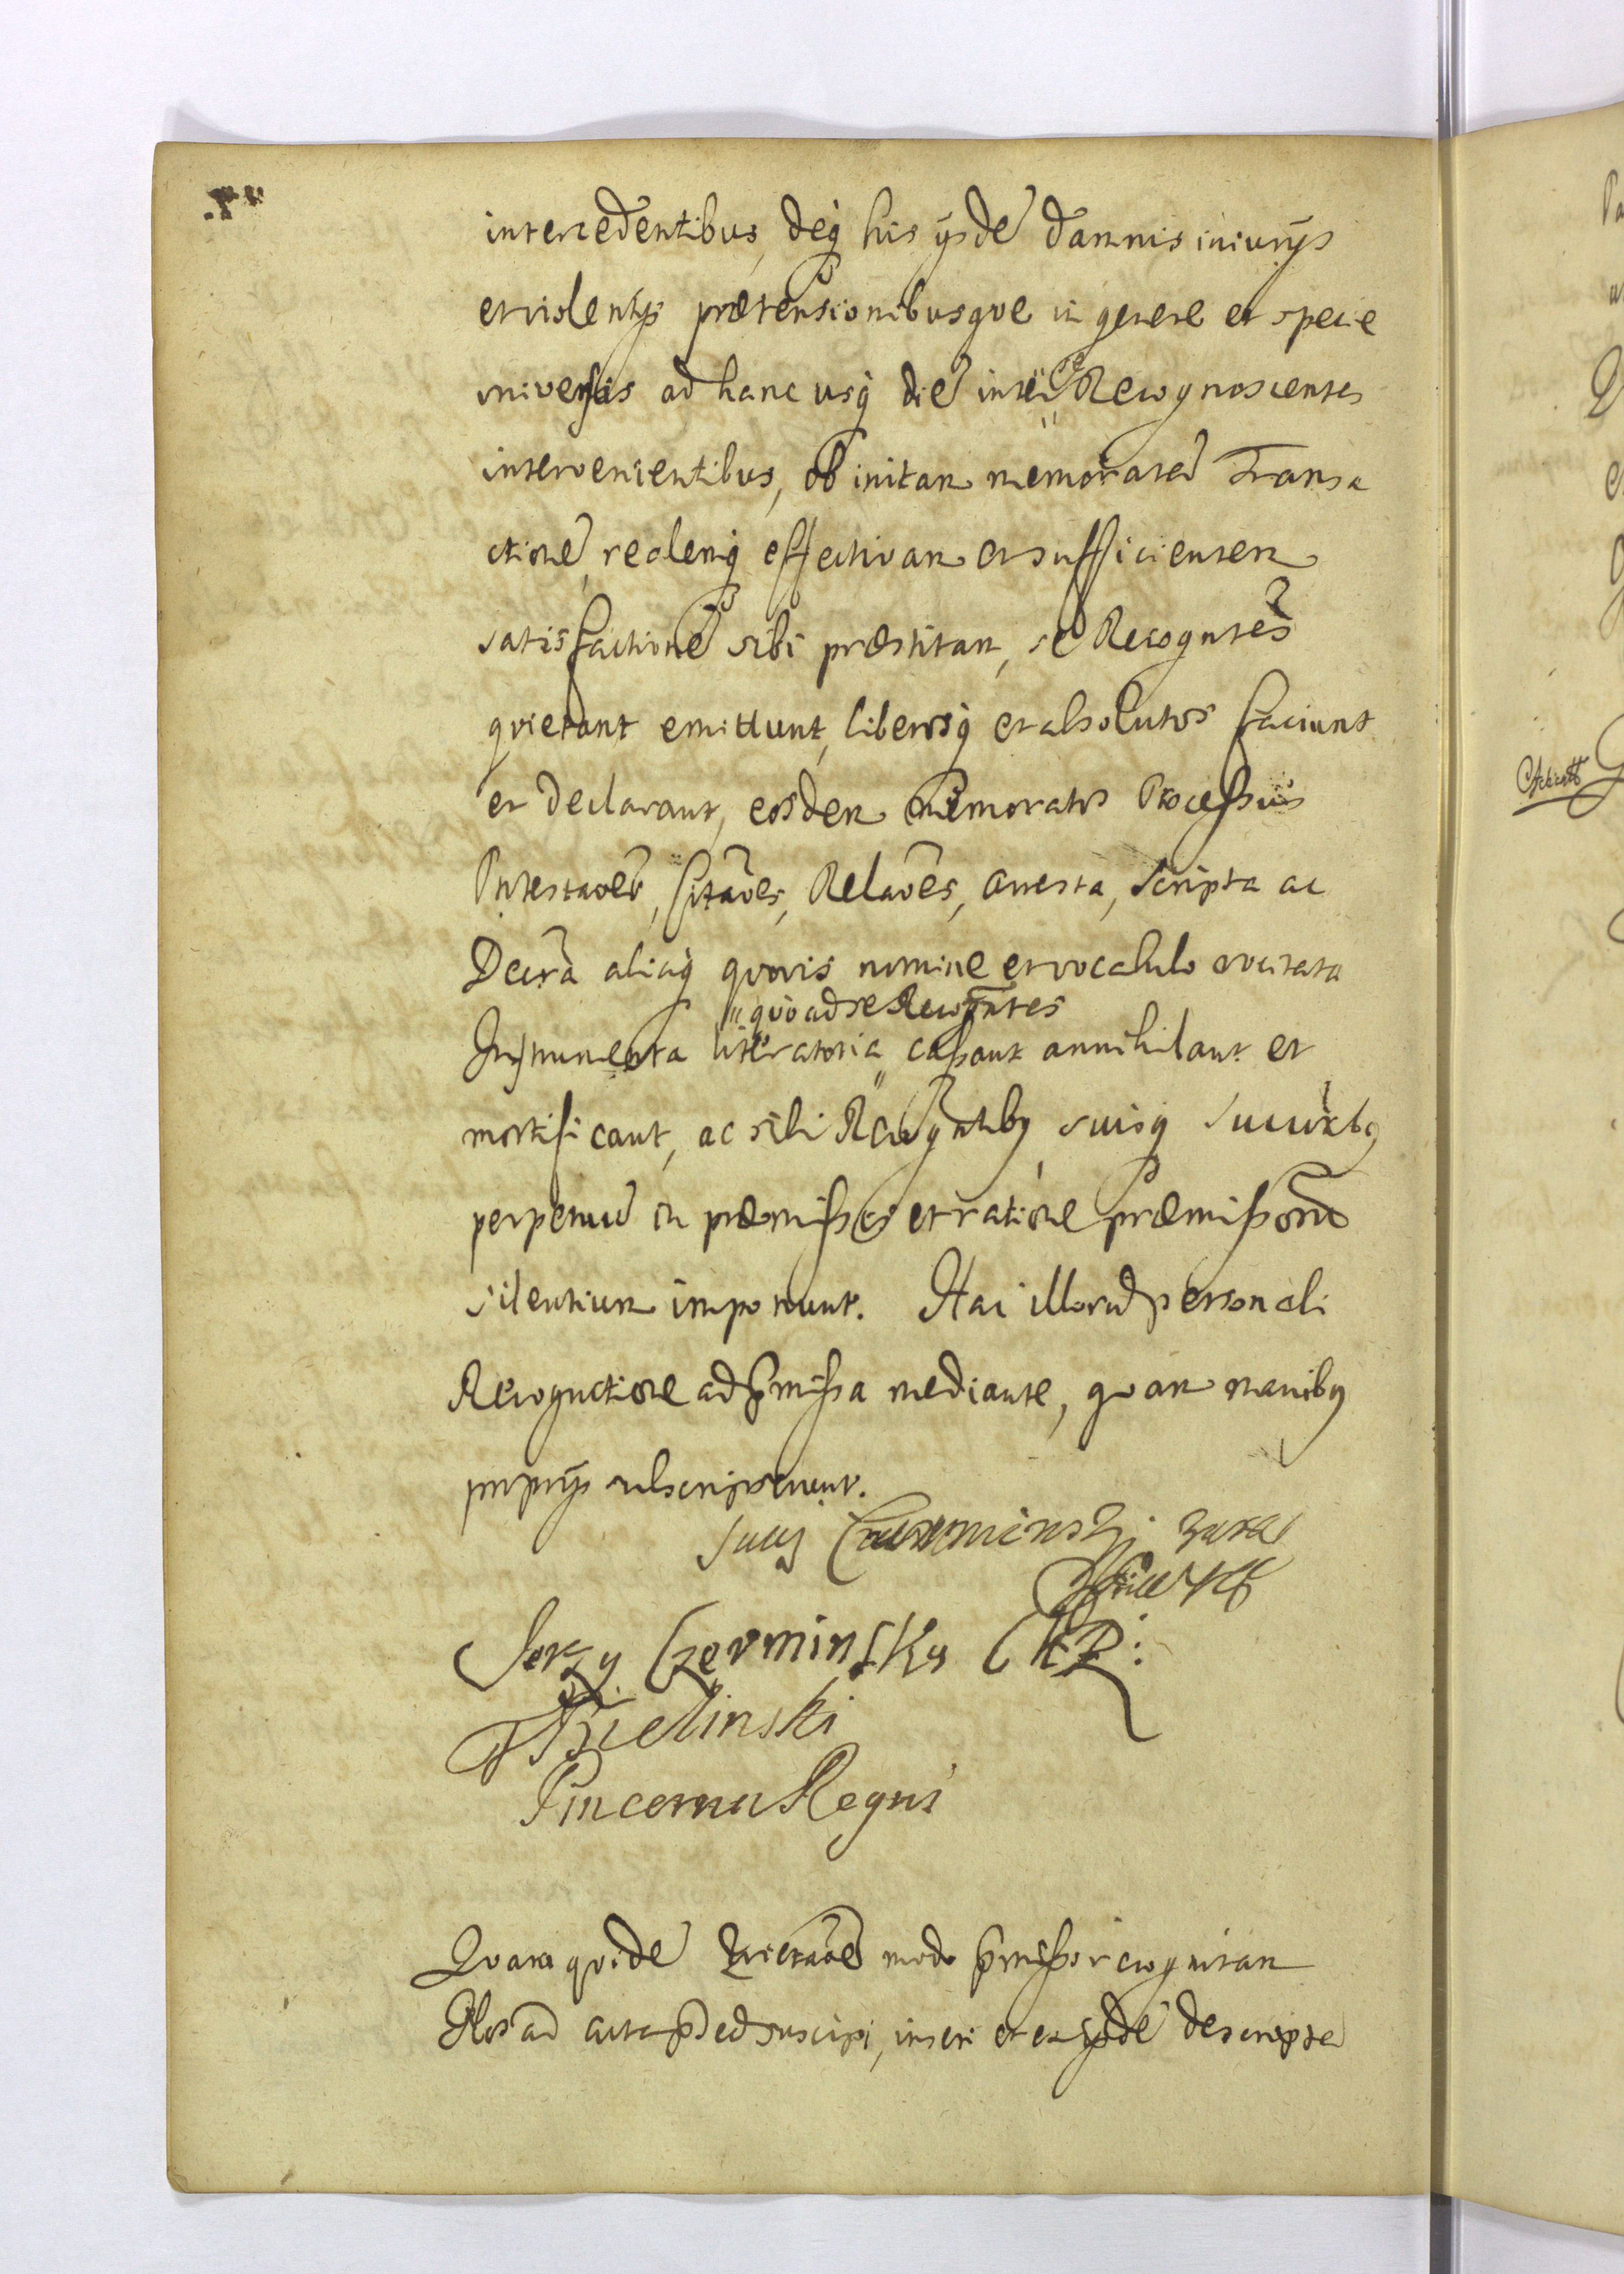 intercedentibus, deq̨ his ÿsdē damnis iniurÿs
et violentÿs prætensionibusque in genere et specie
universis ad hanc usq̨ diē inter se Recognoscentes
intervenientibus, ob initam memoratā Transa
ctionē, realemq̨ effectivam et sufficientem
satisfactionē sibi præstitam, se Recogntēs
quietant emittunt, liberosq̨ et absolutos faciunt
et declarant, eosdem memoratos Processus
Protestaōes, Citaōes, Relaōes, Arresta, Scripta ac
Decrā aliaq̨ quovis nomine et vocabulo vocitata
quo ad se Recogntes
Instrumenta literatoria cassant annihilant et
mortificant, ac sibi Recogntibq suisq̨ Succribq
perpetuū in præmissis et ratione præmissorū
silentium imponunt. Hac illorū personali
Recognitione ad p̄missa mediante, quam manibq
proprÿs subscripserunt.
Jerzy Czerminsky CKP:
Bielinski
Pincerna Regni
Quam quidē Quietaōē modo p̄misso recognitam
ad acta suscipi, inseri et ex ÿsdē descripta